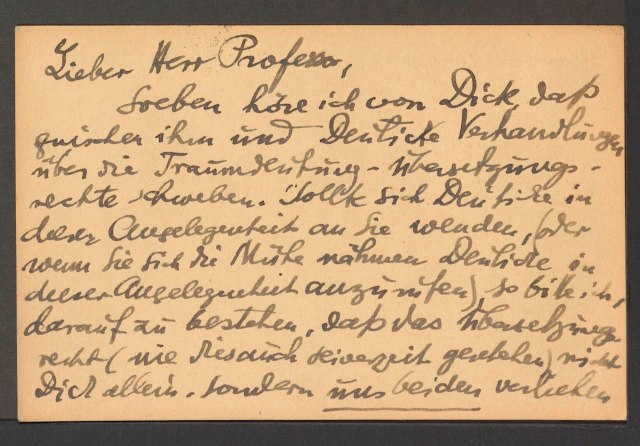 Lieber Herr Professor,
Soeben höre ich von Dick, daß
zwischen ihm und Deuticke Verhandlungen
über die Traumdeutung-Übersetzungs-
rechte schweben. Sollte sich Deuticke in
dieser Angelegenheit an Sie wenden, (oder
wenn Sie sich die Mühe nähmen Deuticke in
dieser Angelegenheit anzurufen) so bitte ich,
darauf zu bestehen, daß das Übersetzungs
recht (wie dies auch seinerzeit geschehen) nicht
Dick allein, sondern uns beiden verliehen